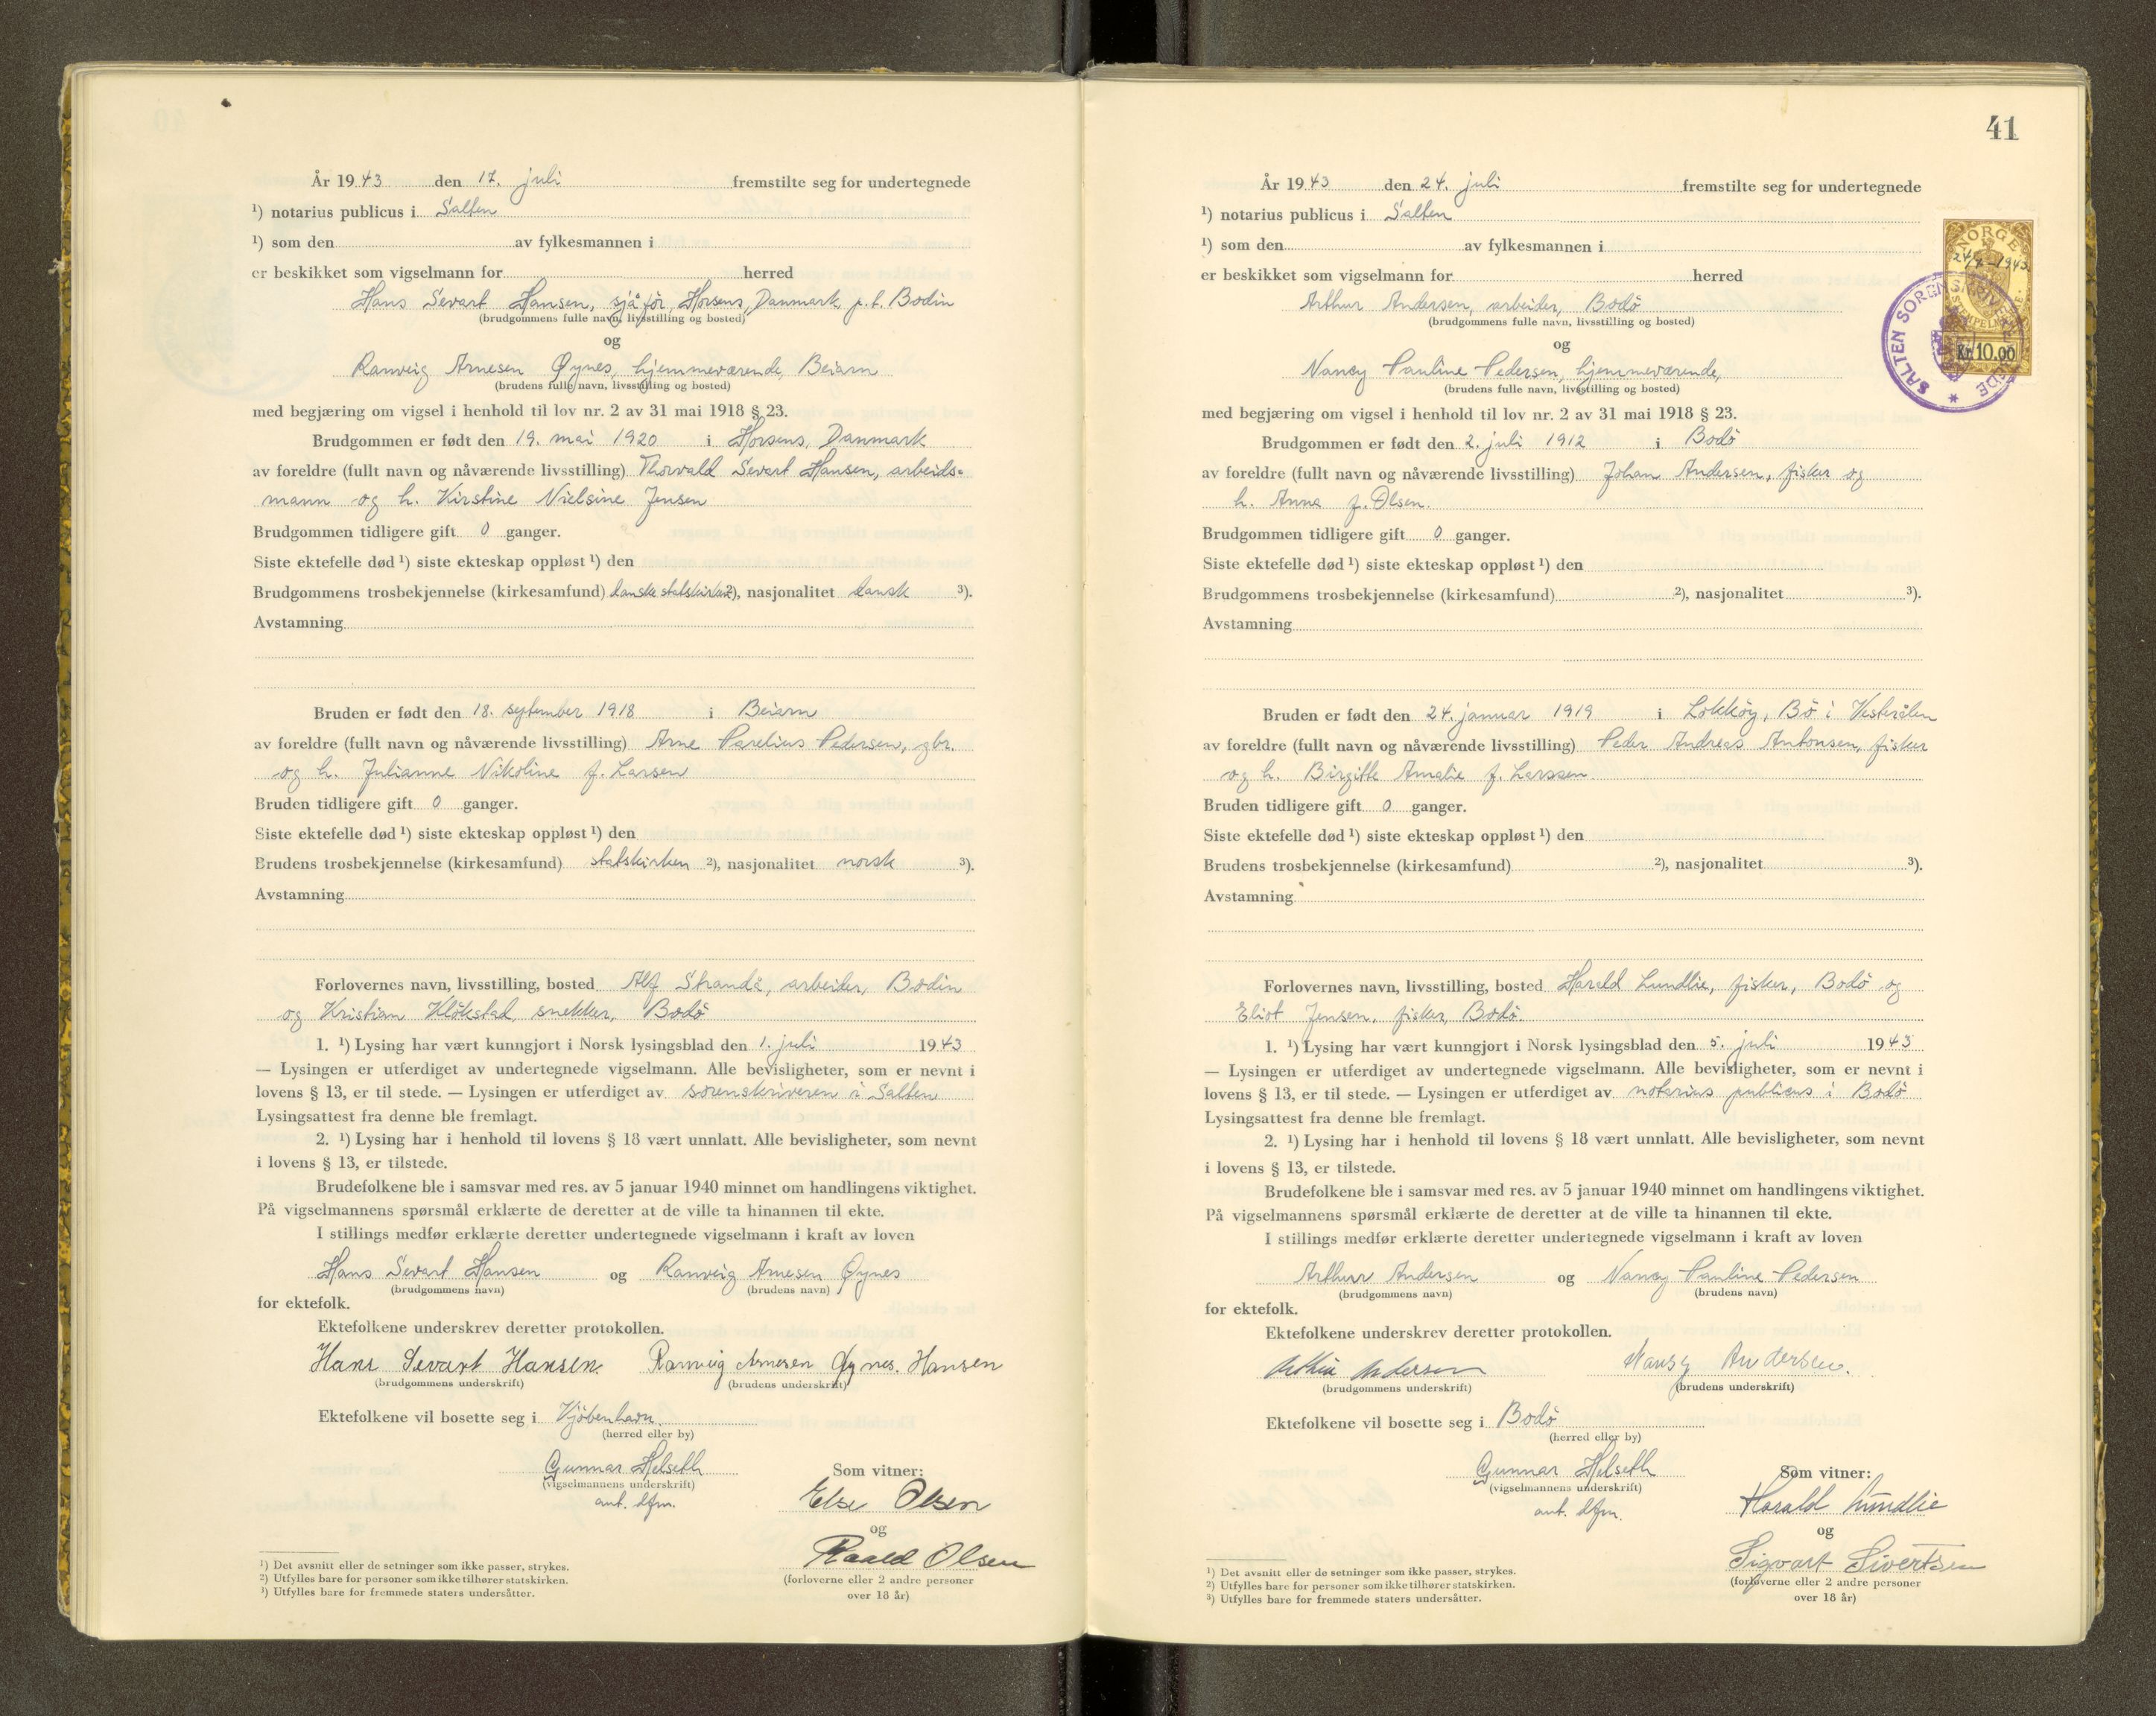 År 1943 den 17. juli fremstilte seg for undertegnede
¹) notarius publicus i Salten
¹) som den av fylkesmannen i
er beskikket som vigselmann for herred
Hans Sevart Hansen, sjåför, Horsens, Danmark p.t. Bodin
(brudgommens fulle navn, livsstilling og bosted)
og
Ranveig Arnesen Øynes, hjemmeværende, Beiarn
(brudens fulle navn, livsstilling og bosted)
med begjæring om vigsel i henhold til lov nr. 2 av 31 mai 1918 § 23.
Brudgommen er født den 19. mai 1920 i Horsens, Danmark
av foreldre (fullt navn og nåværende livsstilling) Thorvald Sevart Hansen, arbeids-
mann og h. Kirstine Nielsine Jensen
Brudgommen tidligere gift 0 ganger.
Siste ektefelle død ¹) siste ekteskap oppløst ¹) den
Brudgommens trosbekjennelse (kirkesamfund) danske statskirke ²), nasjonalitet dansk ³).
Avstamning
Bruden er født den 18. september 1918 i Beiarn
av foreldre (fullt navn og nåværende livsstilling) Arne Parelius Pedersen, gbr.
og h. Julianne Nikoline f. Larsen
Bruden tidligere gift 0 ganger.
Siste ektefelle død ¹) siste ekteskap oppløst ¹) den
Brudens trosbekjennelse (kirkesamfund) statskirken ²), nasjonalitet norsk ³).
Avstamning
Forlovernes navn, livsstilling, bosted Alf Strandå, arbeider, Bodin
og Kristian Klökstad, snekker, Bodö
1. ¹) Lysing har vært kunngjort i Norsk lysingsblad den 1. juli 1943
— Lysingen er utferdiget av undertegnede vigselmann. Alle bevisligheter, som er nevnt i
lovens § 13, er til stede. — Lysingen er utferdiget av sorenskriveren i Salten
Lysingsattest fra denne ble fremlagt.
2. ¹) Lysing har i henhold til lovens § 18 vært unnlatt. Alle bevisligheter, som nevnt
i lovens § 13, er tilstede.
Brudefolkene ble i samsvar med res. av 5 januar 1940 minnet om handlingens viktighet.
På vigselmannens spørsmål erklærte de deretter at de ville ta hinannen til ekte.
I stillings medfør erklærte deretter undertegnede vigselmann i kraft av loven
Hans Sevart Hansen og Ranveig Arnesen Øynes
(brudgommens navn) (brudens navn)
for ektefolk.
Ektefolkene underskrev deretter protokollen.
Hans Sevart Hansen. Ranveig Arnesen Øynes. Hansen
(brudgommens underskrift) (brudens underskrift)
Ektefolkene vil bosette seg i Kjöbenhavn.
(herred eller by)
Gunnar Helseth Som vitner:
(vigselmannens underskrift)
ant. dfm.
Else Olsen
og
Raald Olsen
(forloverne eller 2 andre personer
over 18 år)
¹) Det avsnitt eller de setninger som ikke passer, strykes.
²) Utfylles bare for personer som ikke tilhører statskirken.
³) Utfylles bare for fremmede staters undersåtter.
41
År 1943 den 24. juli fremstilte seg for undertegnede
¹) notarius publicus i Salten
¹) som den av fylkesmannen i
er beskikket som vigselmann for herred
Arthur Andersen, arbeider, Bodö
(brudgommens fulle navn, livsstilling og bosted)
og
Nancy Pauline Pedersen, hjemmeværende,
(brudens fulle navn, livsstilling og bosted)
med begjæring om vigsel i henhold til lov nr. 2 av 31 mai 1918 § 23.
NORGE
24/7-1943
STEMPELMERKE
Kr. 10.00
SALTEN SORENSKRIVEREMBEDE
Brudgommen er født den 2. juli 1912 i Bodö
av foreldre (fullt navn og nåværende livsstilling) Johan Andersen, fisker og
h. Anna f. Olsen.
Brudgommen tidligere gift 0 ganger.
Siste ektefelle død ¹) siste ekteskap oppløst ¹) den
Brudgommens trosbekjennelse (kirkesamfund) ²), nasjonalitet ³).
Avstamning
Bruden er født den 24. januar 1919 i Lokköy, Bö i Vesterålen
av foreldre (fullt navn og nåværende livsstilling) Peder Andreas Antonsen, fisker
og h. Birgitte Amalie f. Larssen
Bruden tidligere gift 0 ganger.
Siste ektefelle død ¹) siste ekteskap oppløst ¹) den
Brudens trosbekjennelse (kirkesamfund) ²), nasjonalitet ³).
Avstamning
Forlovernes navn, livsstilling, bosted Harald Lundlie, fisker, Bodö og
Eliot Jensen, fisker, Bodö.
1. ¹) Lysing har vært kunngjort i Norsk lysingsblad den 5. juli 1943
— Lysingen er utferdiget av undertegnede vigselmann. Alle bevisligheter, som er nevnt i
lovens § 13, er til stede. — Lysingen er utferdiget av notarius publicus i Bodö
Lysingsattest fra denne ble fremlagt.
2. ¹) Lysing har i henhold til lovens § 18 vært unnlatt. Alle bevisligheter, som nevnt
i lovens § 13, er tilstede.
Brudefolkene ble i samsvar med res. av 5 januar 1940 minnet om handlingens viktighet.
På vigselmannens spørsmål erklærte de deretter at de ville ta hinannen til ekte.
I stillings medfør erklærte deretter undertegnede vigselmann i kraft av loven
Arthur Andersen og Nancy Pauline Pedersen
(brudgommens navn) (brudens navn)
for ektefolk.
Ektefolkene underskrev deretter protokollen.
Arthur Andersen Nansy Andersen.
(brudgommens underskrift) (brudens underskrift)
Ektefolkene vil bosette seg i Bodö
(herred eller by)
Gunnar Helseth Som vitner:
(vigselmannens underskrift)
ant. dfm.
Harald Lundlie
og
Sigvart Sivertsen
(forloverne eller 2 andre personer
over 18 år)
¹) Det avsnitt eller de setninger som ikke passer, strykes.
²) Utfylles bare for personer som ikke tilhører statskirken.
³) Utfylles bare for fremmede staters undersåtter.